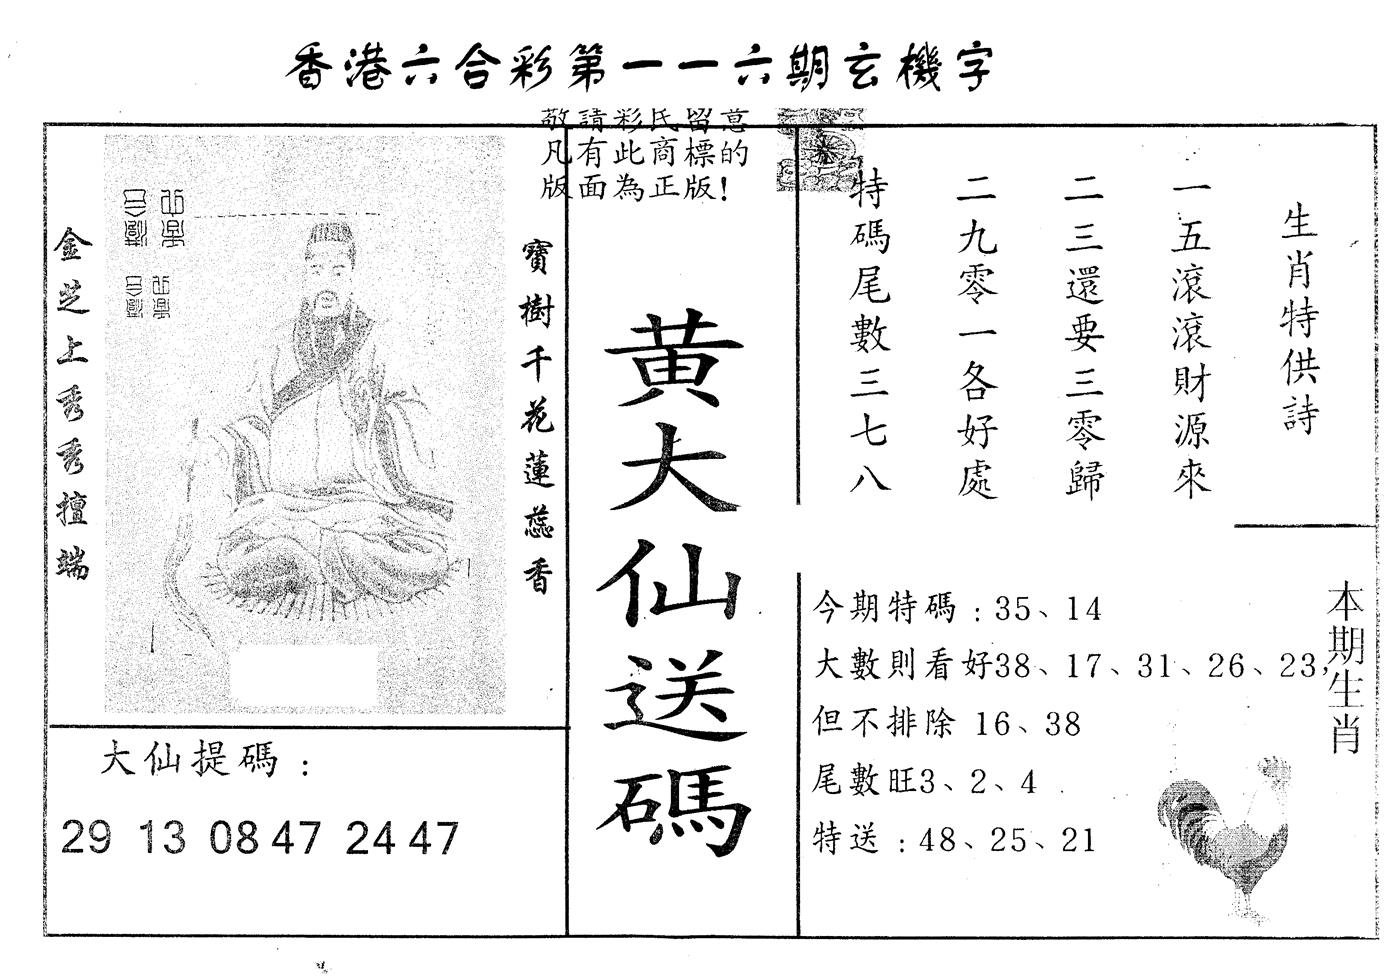 香港六合彩第一一六期玄機字
敬請彩民留意
凡有此商標的
版面為正版!
生肖特供詩
一五滾滾財源來
二三還要三零歸
二九零一各好處
特碼尾數三七八
黃大仙送碼
寶樹千花蓮蕊香
金芝上秀秀擅端
大仙提碼：
29 13 08 47 24 47
今期特碼：35、14
大數則看好38、17、31、26、23,
但不排除 16、38
尾數旺3、2、4
特送：48、25、21
本期生肖